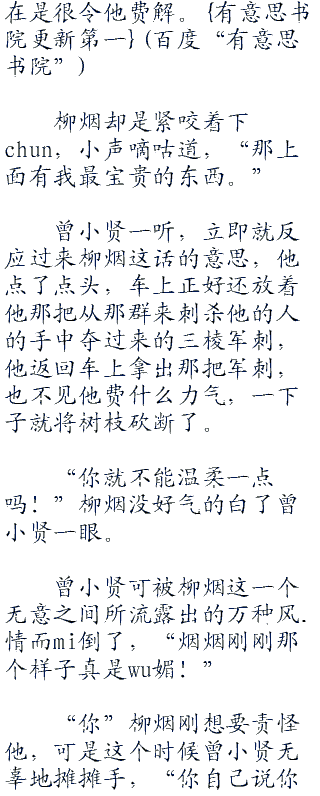 在是很令他费解。{有意思书
院更新第一}(百度“有意思
书院”)
柳烟却是紧咬着下
chun，小声嘀咕道，“那上
面有我最宝贵的东西。”
曾小贤一听，立即就反
应过来柳烟这话的意思，他
点了点头，车上正好还放着
他那把从那群来刺杀他的人
的手中夺过来的三棱军刺，
他返回车上拿出那把军刺，
也不见他费什么力气，一下
子就将树枝砍断了。
“你就不能温柔一点
吗！”柳烟没好气的白了曾
小贤一眼。
曾小贤可被柳烟这一个
无意之间所流露出的万种风.
情而mi倒了，“烟烟刚刚那
个样子真是wu媚！”
“你”柳烟刚想要责怪
他，可是这个时候曾小贤无
辜地摊摊手，“你自己说你